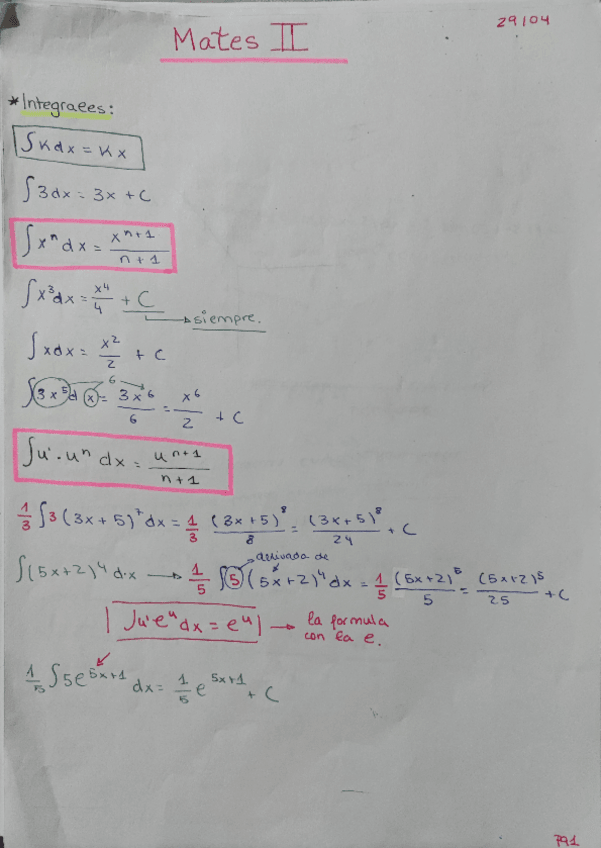 29/04
Mates II
* Integrales:
∫K dx = Kx
∫3 dx = 3x + C
∫xⁿ dx = xⁿ⁺¹/n+1
∫x³ dx = x⁴/4 + C → siempre.
∫x dx = x²/2 + C
6
∫3x⁵ dx = 3x⁶/6 = x⁶/2 + C
∫u' · uⁿ dx = uⁿ⁺¹/n+1
1/3 ∫3(3x+5)⁷ dx = 1/3 (3x+5)⁸/8 = (3x+5)⁸/24 + C
derivada de
∫(5x+2)⁴ d·x → 1/5 ∫5(5x+2)⁴ dx = 1/5 (5x+2)⁵/5 = (5x+2)⁵/25 + C
∫u'eᵘ dx = eᵘ → la formula
con la e.
1/5 ∫5e⁵ˣ⁺¹ dx = 1/5 e⁵ˣ⁺¹ + C
791